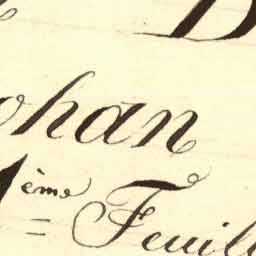 D
ohan
1ème Feuill